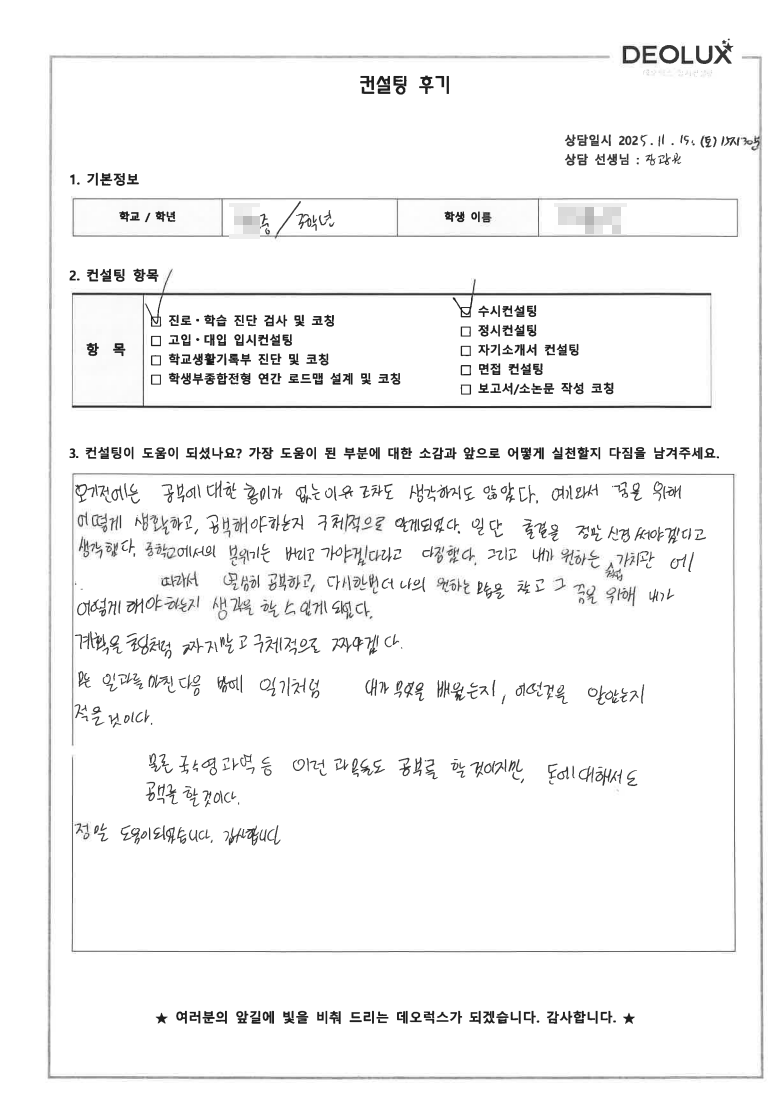 DEOLUX
컨설팅 후기
상담일시 2025. 11. 15. (토) 15시30분
상담 선생님 :
1. 기본정보
학교 / 학년
중 / 3학년
학생 이름
2. 컨설팅 항목
항 목
☑ 진로·학습 진단 검사 및 코칭
□ 고입·대입 입시컨설팅
□ 학교생활기록부 진단 및 코칭
□ 학생부종합전형 연간 로드맵 설계 및 코칭
☑ 수시컨설팅
□ 정시컨설팅
□ 자기소개서 컨설팅
□ 면접 컨설팅
□ 보고서/소논문 작성 코칭
3. 컨설팅이 도움이 되셨나요? 가장 도움이 된 부분에 대한 소감과 앞으로 어떻게 실천할지 다짐을 남겨주세요.
오기전에는 공부에 대한 흥미가 없는이유 조차도 생각하지도 않았다. 여기와서 꿈을 위해
어떻게 생활하고, 공부해야하는지 구체적으로 알게되었다. 일단 출결을 정말 신경써야겠다고
생각했다. 중학교에서의 분위기는 버리고 가야겠다라고 다짐했다. 그리고 내가 원하는 직업 가치관 에
따라서 열심히 공부하고, 다시한번더 나의 원하는 모습을 찾고 그 꿈을 위해 내가
어떻게 해야 하는지 생각을 할 수 있게 되었다.
계획을 처럼 짜지말고 구체적으로 짜야겠다.
모든 일과를 마친다음 밤에 일기처럼 내가 무엇을 배웠는지, 어떤것을 알았는지
적을것이다.
물론 국수영과역 등 이런 과목들도 공부를 할 것이지만, 돈에 대해서도
공부를 할것이다.
정말 도움이되었습니다. 감사합니다
★ 여러분의 앞길에 빛을 비춰 드리는 데오럭스가 되겠습니다. 감사합니다. ★